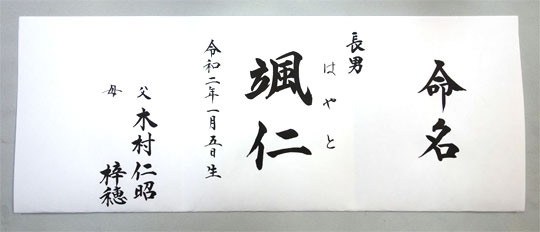 命名
長男
はやと
颯仁
令和二年一月五日生
父 木村仁昭
母 梓穂